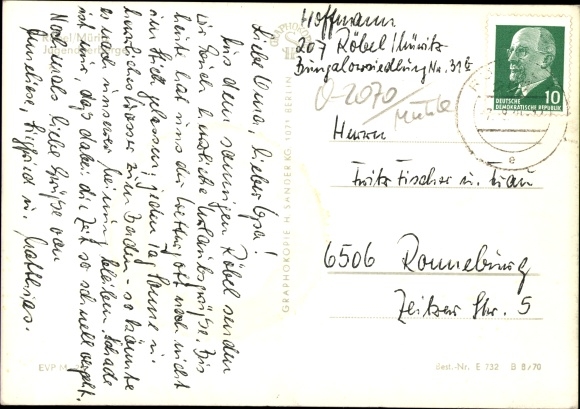 Liebe Oma, lieber Opa!
Aus dem sonnigen Röbel senden
wir Euch herzliche Urlaubsgrüße. Bis
heute hat uns der Wettergott noch nicht
im Stich gelassen, jeden Tag Sonne u.
herrliches Wasser zum Baden - so könnte
es nach unserer Meinung bleiben. Schade
ist nur, daß dabei die Zeit so schnell vergeht.
Nochmals liebe Grüße von
Anneliese, Siegfried u. Matthias.
Röbel/Müritz
Jugendherberge
EVP M
GRAPHOKOPIE H. SANDER KG 1071 BERLIN
Hoffmann
207 Röbel/Müritz
Bungalowsiedlung Nr. 31
O-2070
Mühle
DEUTSCHE
DEMOKRATISCHE REPUBLIK
10
e
Herrn
Fritz Fischer u. Frau
6506 Ronneburg
Zeitzer Str. 5
Best.-Nr. E 732 B 8/70